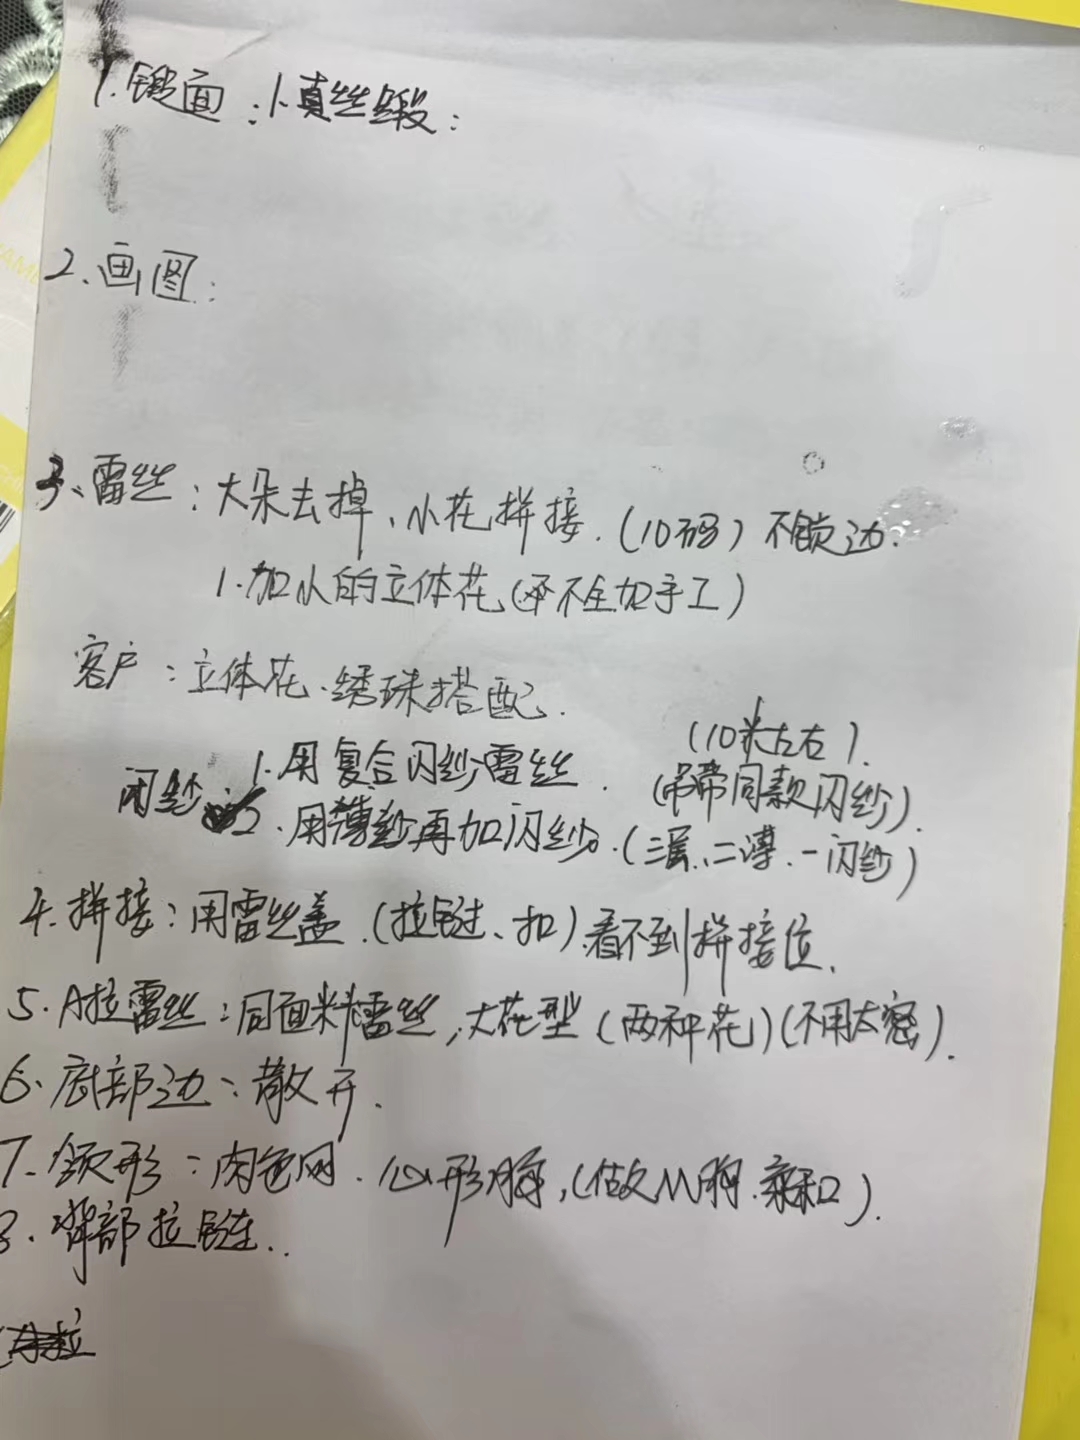 1.缎面:1.真丝缎:
2.画图:
3、雷丝:大朵去掉、小花拼接.(10码)不锁边.
1.加小的立体花(不全加手工)
客户:立体花.绣珠搭配.
(10米左右).
闪纱:1.用复合闪纱雷丝.(吊带同款闪纱).
2.用薄纱再加闪纱.(三层、二薄.一闪纱)
4.拼接:用雷丝盖.(拉链、扣).看不到拼接位.
5.A拉雷丝:同面料雷丝,大花型(两种花)(不用太密).
6.底部边:散开.
7.领形:肉色网.心形胸,(做M胸.).
8.背部拉链..
拉